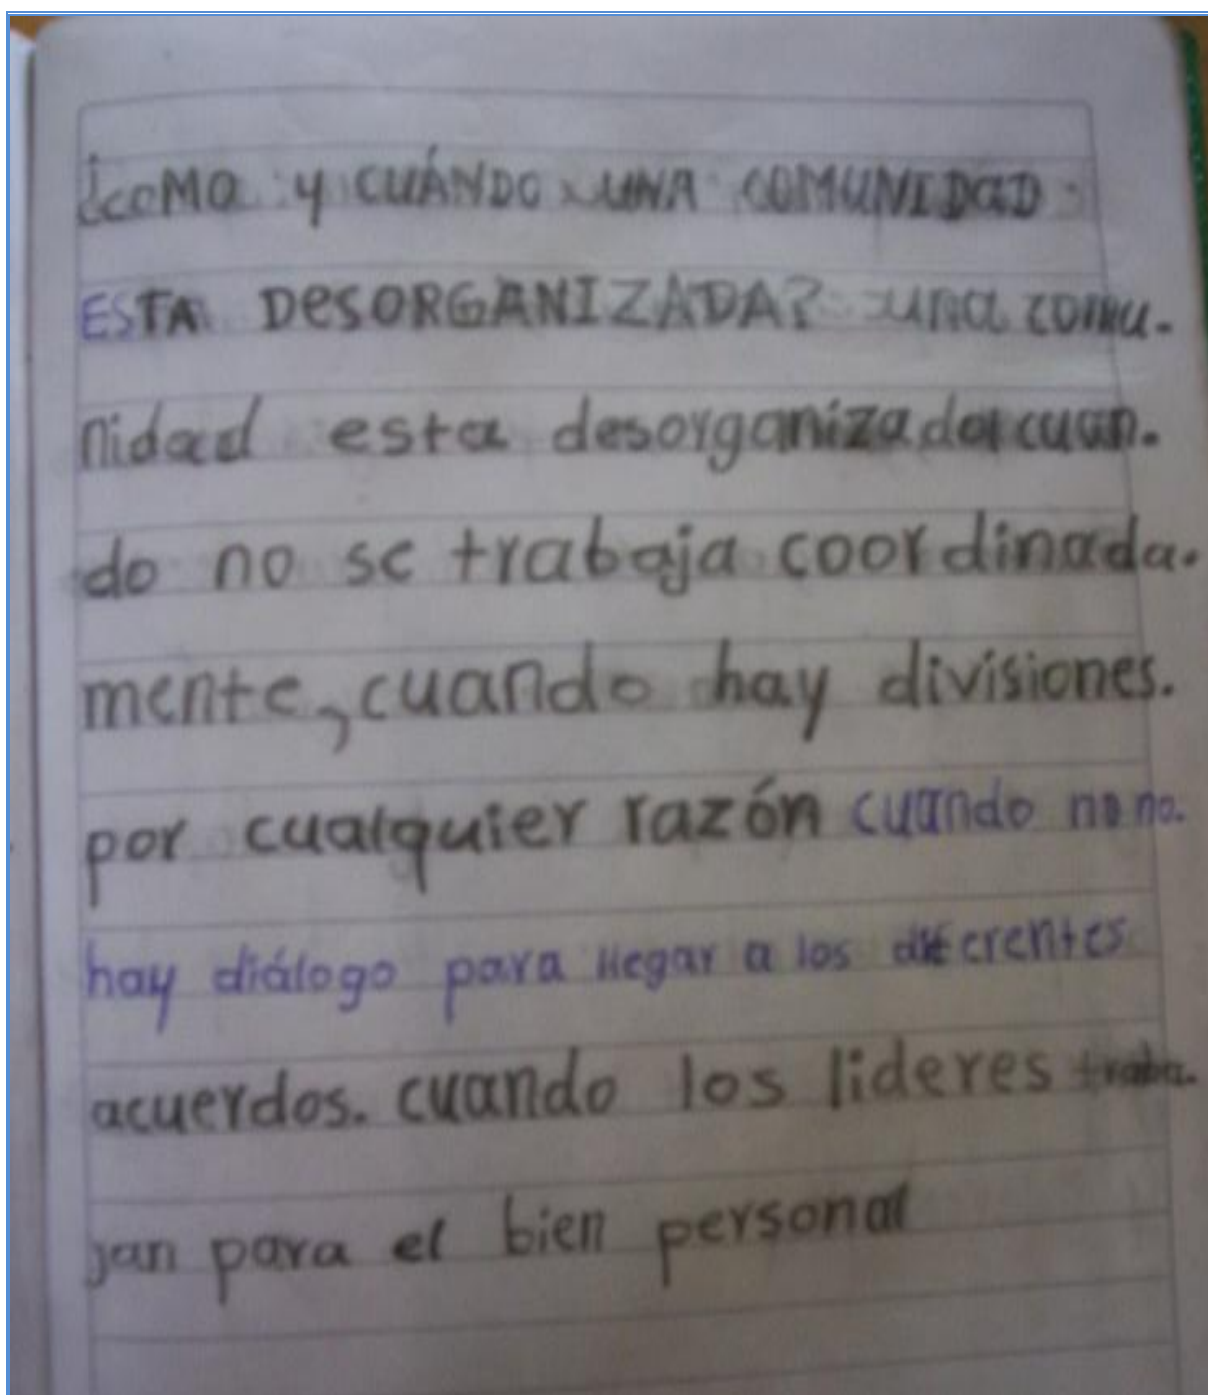 ¿COMO Y CUÁNDO UNA COMUNIDAD
ESTA DESORGANIZADA? una comu-
nidad esta desorganizada cuan-
do no se trabaja coordinada-
mente, cuando hay divisiones.
por cualquier razón cuando no no.
hay diálogo para llegar a los diferentes
acuerdos. cuando los lideres traba-
jan para el bien personal